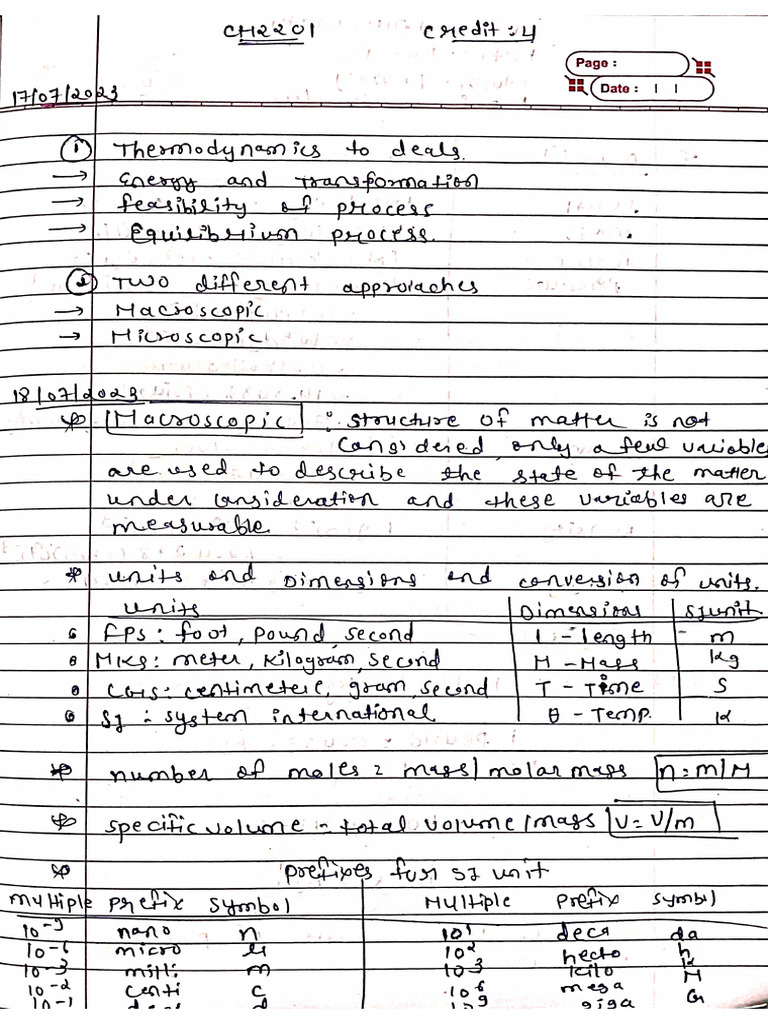 CH2201 Credit : 4
Page :
Date : | |
17/07/2023
① Thermodynamics to deals.
→ Energy and transformation
→ feasibility of process
→ Equilibrium process.
② Two different approaches
→ Macroscopic
→ Microscopic
18/07/2023
* Macroscopic : structure of matter is not
considered only a few variables
are used to describe the state of the matter
under consideration and these variables are
measurable.
* units and Dimensions and conversion of units.
units Dimensions SI unit
FPS : foot, pound, second l - length m
MKS : meter, kilogram, second M - Mass kg
CGS : centimetere, gram, second T - Time S
SI : system international θ - Temp. K
* number of moles = mass/molar mass n = m/M
* specific volume - total volume/mass V = V/m
* prefixes for SI unit
Multiple prefix symbol Multiple prefix symbol
10⁻⁹ nano n 10¹ deca da
10⁻⁶ micro μ 10² hecto h
10⁻³ milli m 10³ kilo k
10⁻² centi c 10⁶ mega M
10⁻¹ d 10⁹ giga G